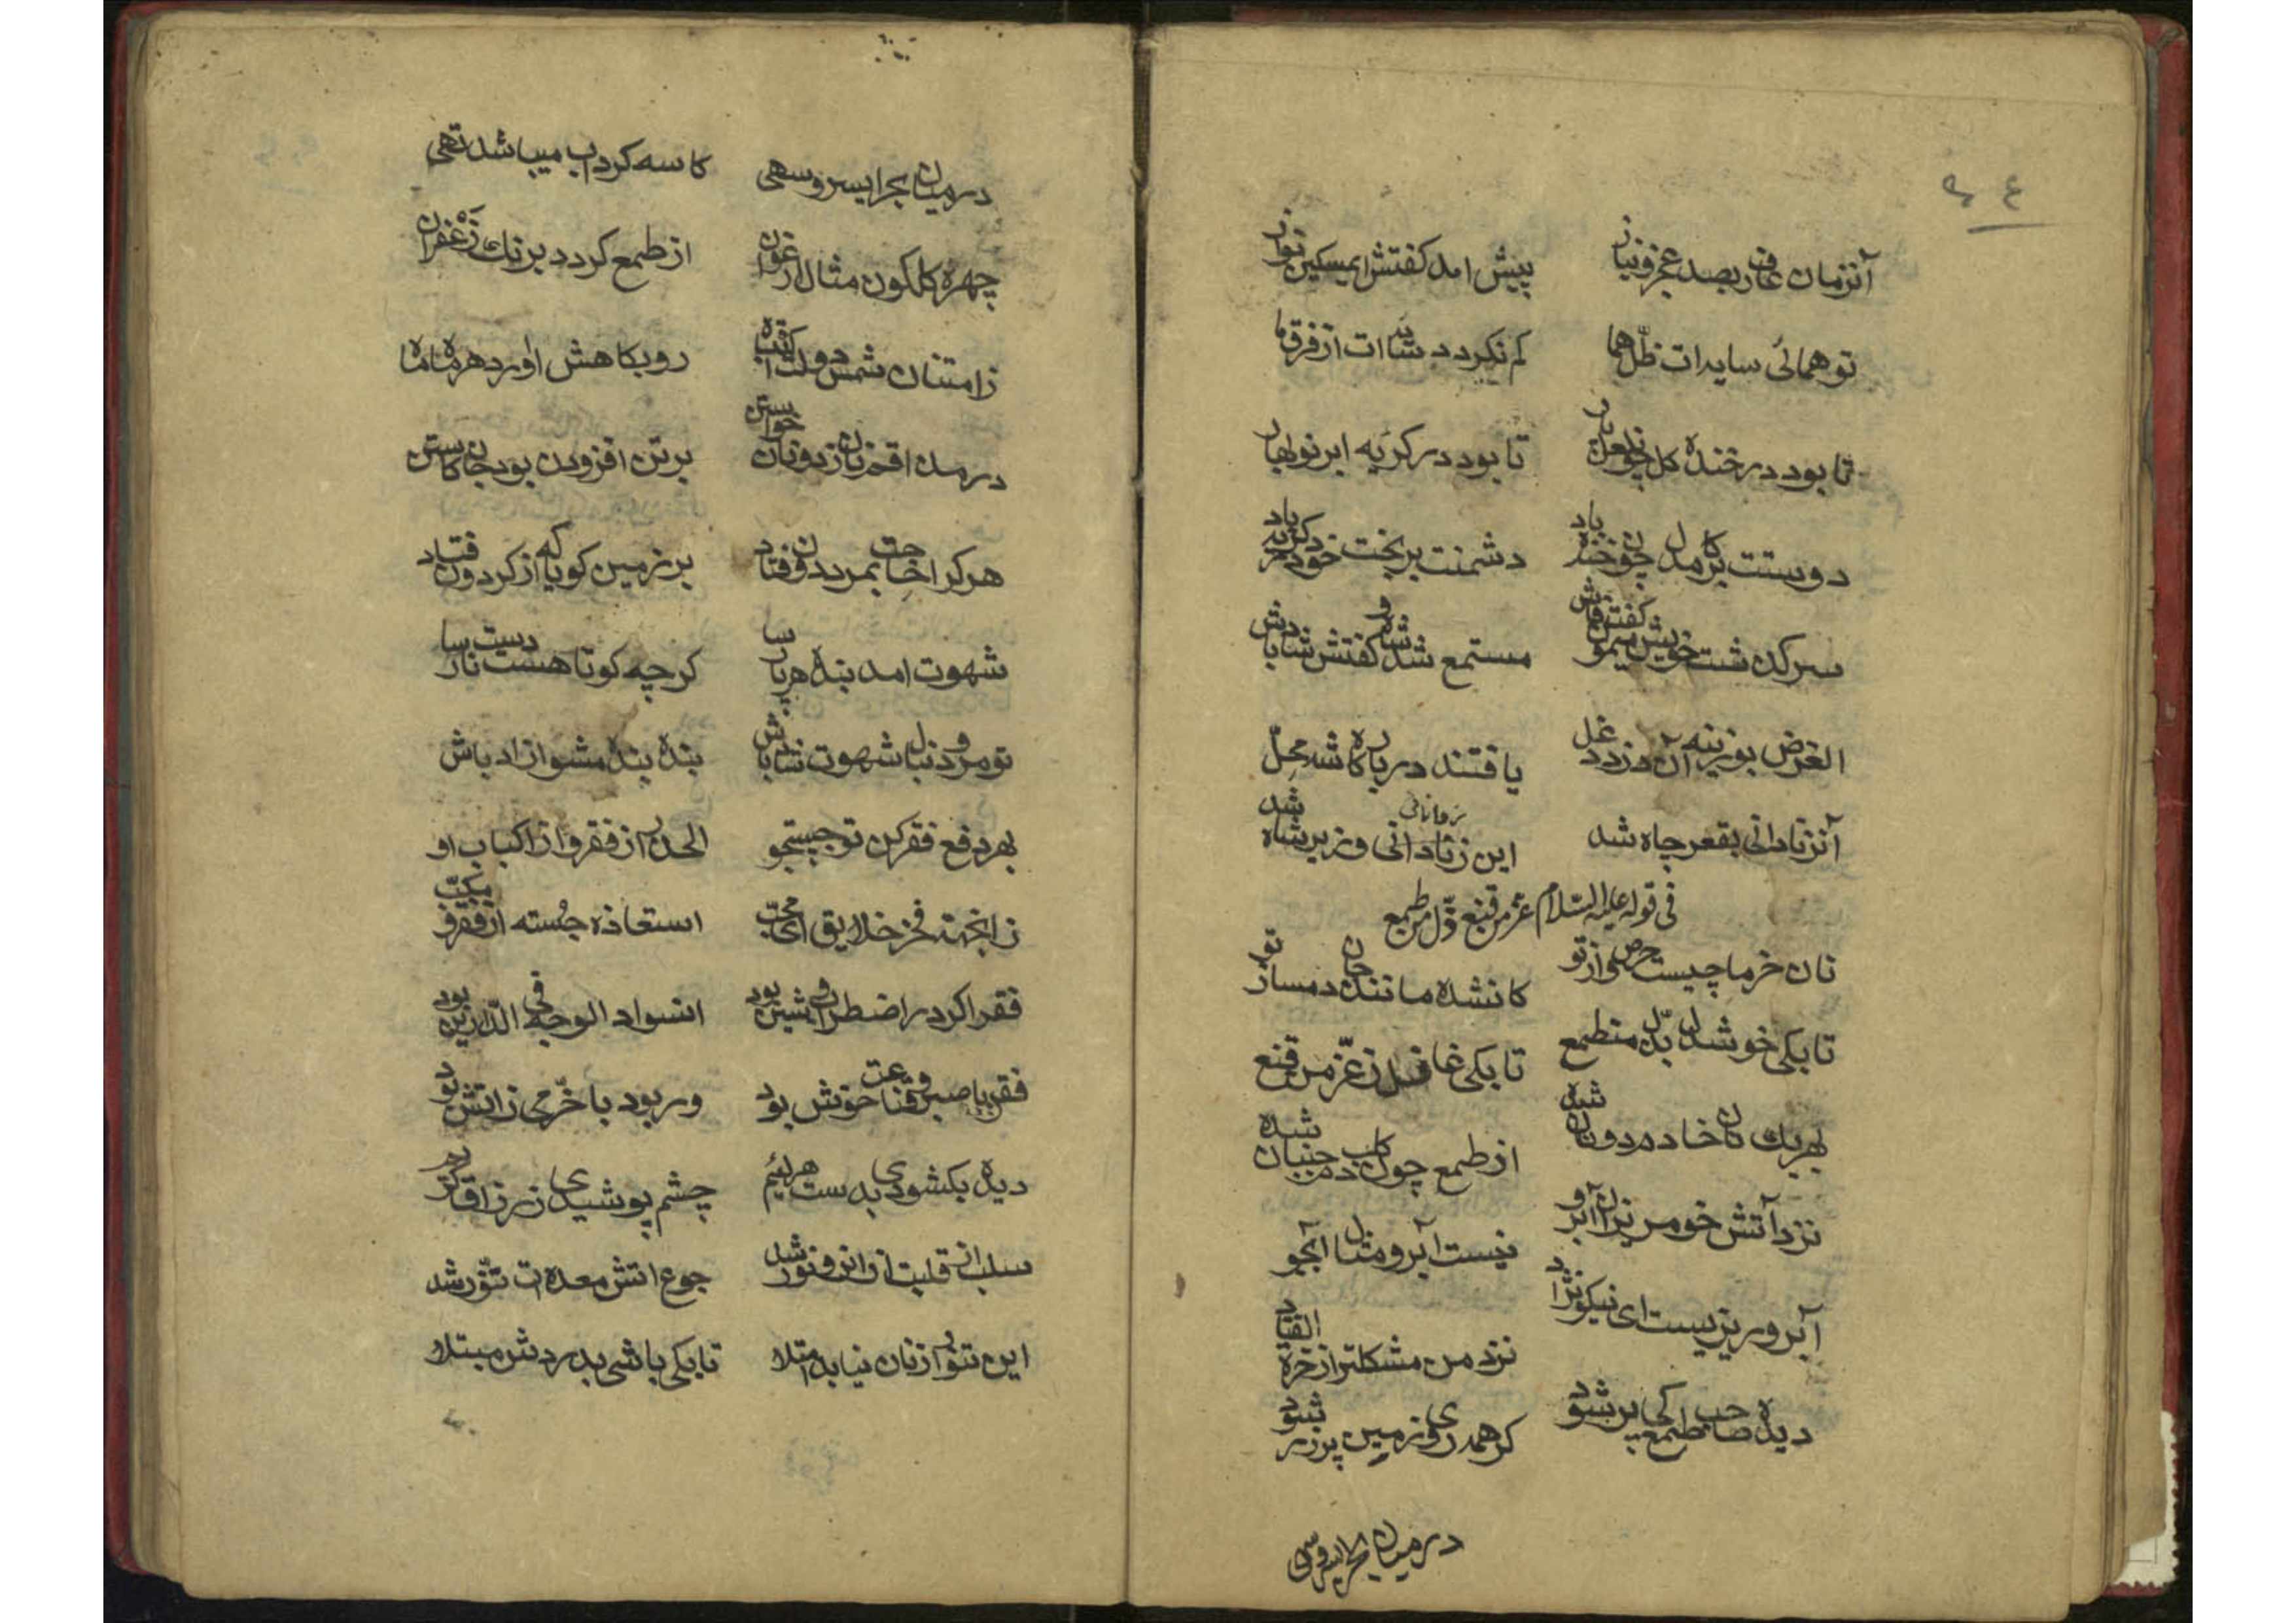 آنزمان عارف بصد عجز و نیاز پیش امد کفتش ای مسکین نواز
تو همائی سایه‌ات ظلّ هما کم نکردد سایه‌ات از فرق ما
تا بود در خندهٔ کل چون لعل یار تا بود در کریه ابر نوبهار
دوستت بر کام دل چون خنده باد دشمنت بر بخت خود کرینده باد
سرکذشت خویش میمون کفت فاش مستمع شد شاه و کفتش شاد باش
الغرض بوزینه آن دزد دغل یافتند در بارکاه شه محل
آن ز نادانی بقعر چاه شد این ز دانائی وزیر شاه شد
فی قوله علیه السّلام عزّ من قنع ذلّ من طمع
نان خرما چیست حرص و آز تو کانشده مانند جان دمساز تو
تا بکی خوشدل بذلّ من طمع تا بکی غافل ز عزّ من قنع
بهر یک نان خادم دونان شده از طمع چون کلب دم جنبان شده
نزد آتش خو مریزان آبرو نیست آبرو مثال آبجو
آبرو ریزیست ای نیکو نژاد نزد من مشکلتر از خرط القتاد
دیدهٔ صاحب طمع کی پر شود کر همه روی زمین پر زر شود
در میان بحر ای سرو سهی
در میان بحر ای سرو سهی کاسه کرداب میباشد تهی
چهره کلکون مثال ارغوان از طمع کردد برنک زَعْفران
ز امتنان شمس دولت کشته رو بکاهش اورد هر ماه ماه
در مدد اقمر نان ز دونان خواستن بر تن افزودن بود جان کاستن
هر کرا حاجت بمرد دون فتاد بر زمین کویا که از کردون فتاد
شهوت امد بندهٔ هر پارسا کرچه کوتاهست دست نارسا
تو مرو دنبال شهوت شاد باش بندهٔ بنده مشو ازاد باش
بهر دفع فقر کن تو جستجو الحذر از فقر و از اکباب او
زانجهة فخر خلایق ای محبّ استعاذه جُسته از فقر مکبّ
فقر اکر در اضطرار شین بود انسواد الوجه فی الدّارین بود
فقر با صبر و قناعت خوش بود ور بود با خرّمی ز اتش بود
دیده بکشودی بدست هر لئیم چشم پوشیدی ز رزاق کریم
سلب از قلبت از انرو نور شد جوع اتش معده‌ات تنّور شد
این تنور از نان نیابد امتلا تا بکی باشی بدردش مبتلا